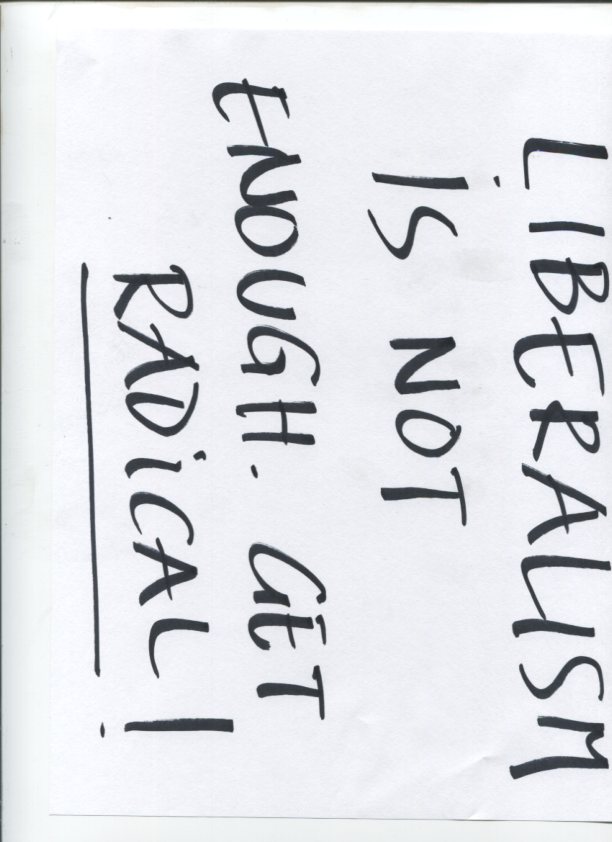 LIBERALISM
iS NOT
ENOUGH. GET
RADiCAL!